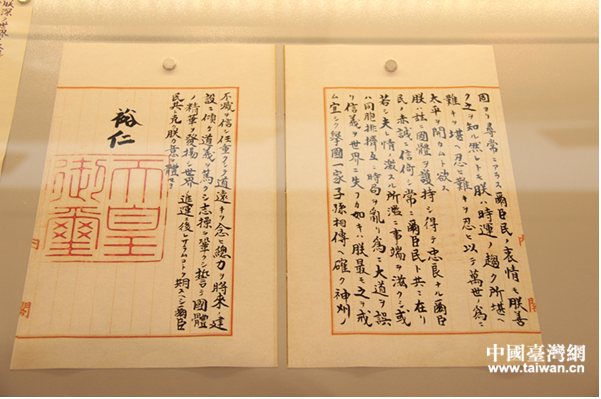 固ヨリ尋常ニアラス爾臣民ノ衷情モ朕善
ク之ヲ知ル然レトモ朕ハ時運ノ趨ク所堪ヘ
難キヲ堪ヘ忍ヒ難キヲ忍ヒ以テ萬世ノ為ニ
太平ヲ開カムト欲ス
朕ハ茲ニ國體ヲ護持シ得テ忠良ナル爾臣
民ノ赤誠ニ信倚シ常ニ爾臣民ト共ニ在リ
若シ夫レ情ノ激スル所濫ニ事端ヲ滋クシ或
ハ同胞排擠互ニ時局ヲ亂リ為ニ大道ヲ誤
リ信義ヲ世界ニ失フカ如キハ朕最モ之ヲ戒
ム宜シク擧國一家子孫相傳ヘ確ク神州ノ
不滅ヲ信シ任重クシテ道遠キヲ念ヒ總力ヲ將來ノ建
設ニ傾ケ道義ヲ篤クシ志操ヲ鞏クシ誓テ國體
ノ精華ヲ發揚シ世界ノ進運ニ後レサラムコトヲ期スヘシ爾臣
民其レ克ク朕カ意ヲ體セヨ
裕仁
天皇
御璽
中國臺灣網
www.taiwan.cn